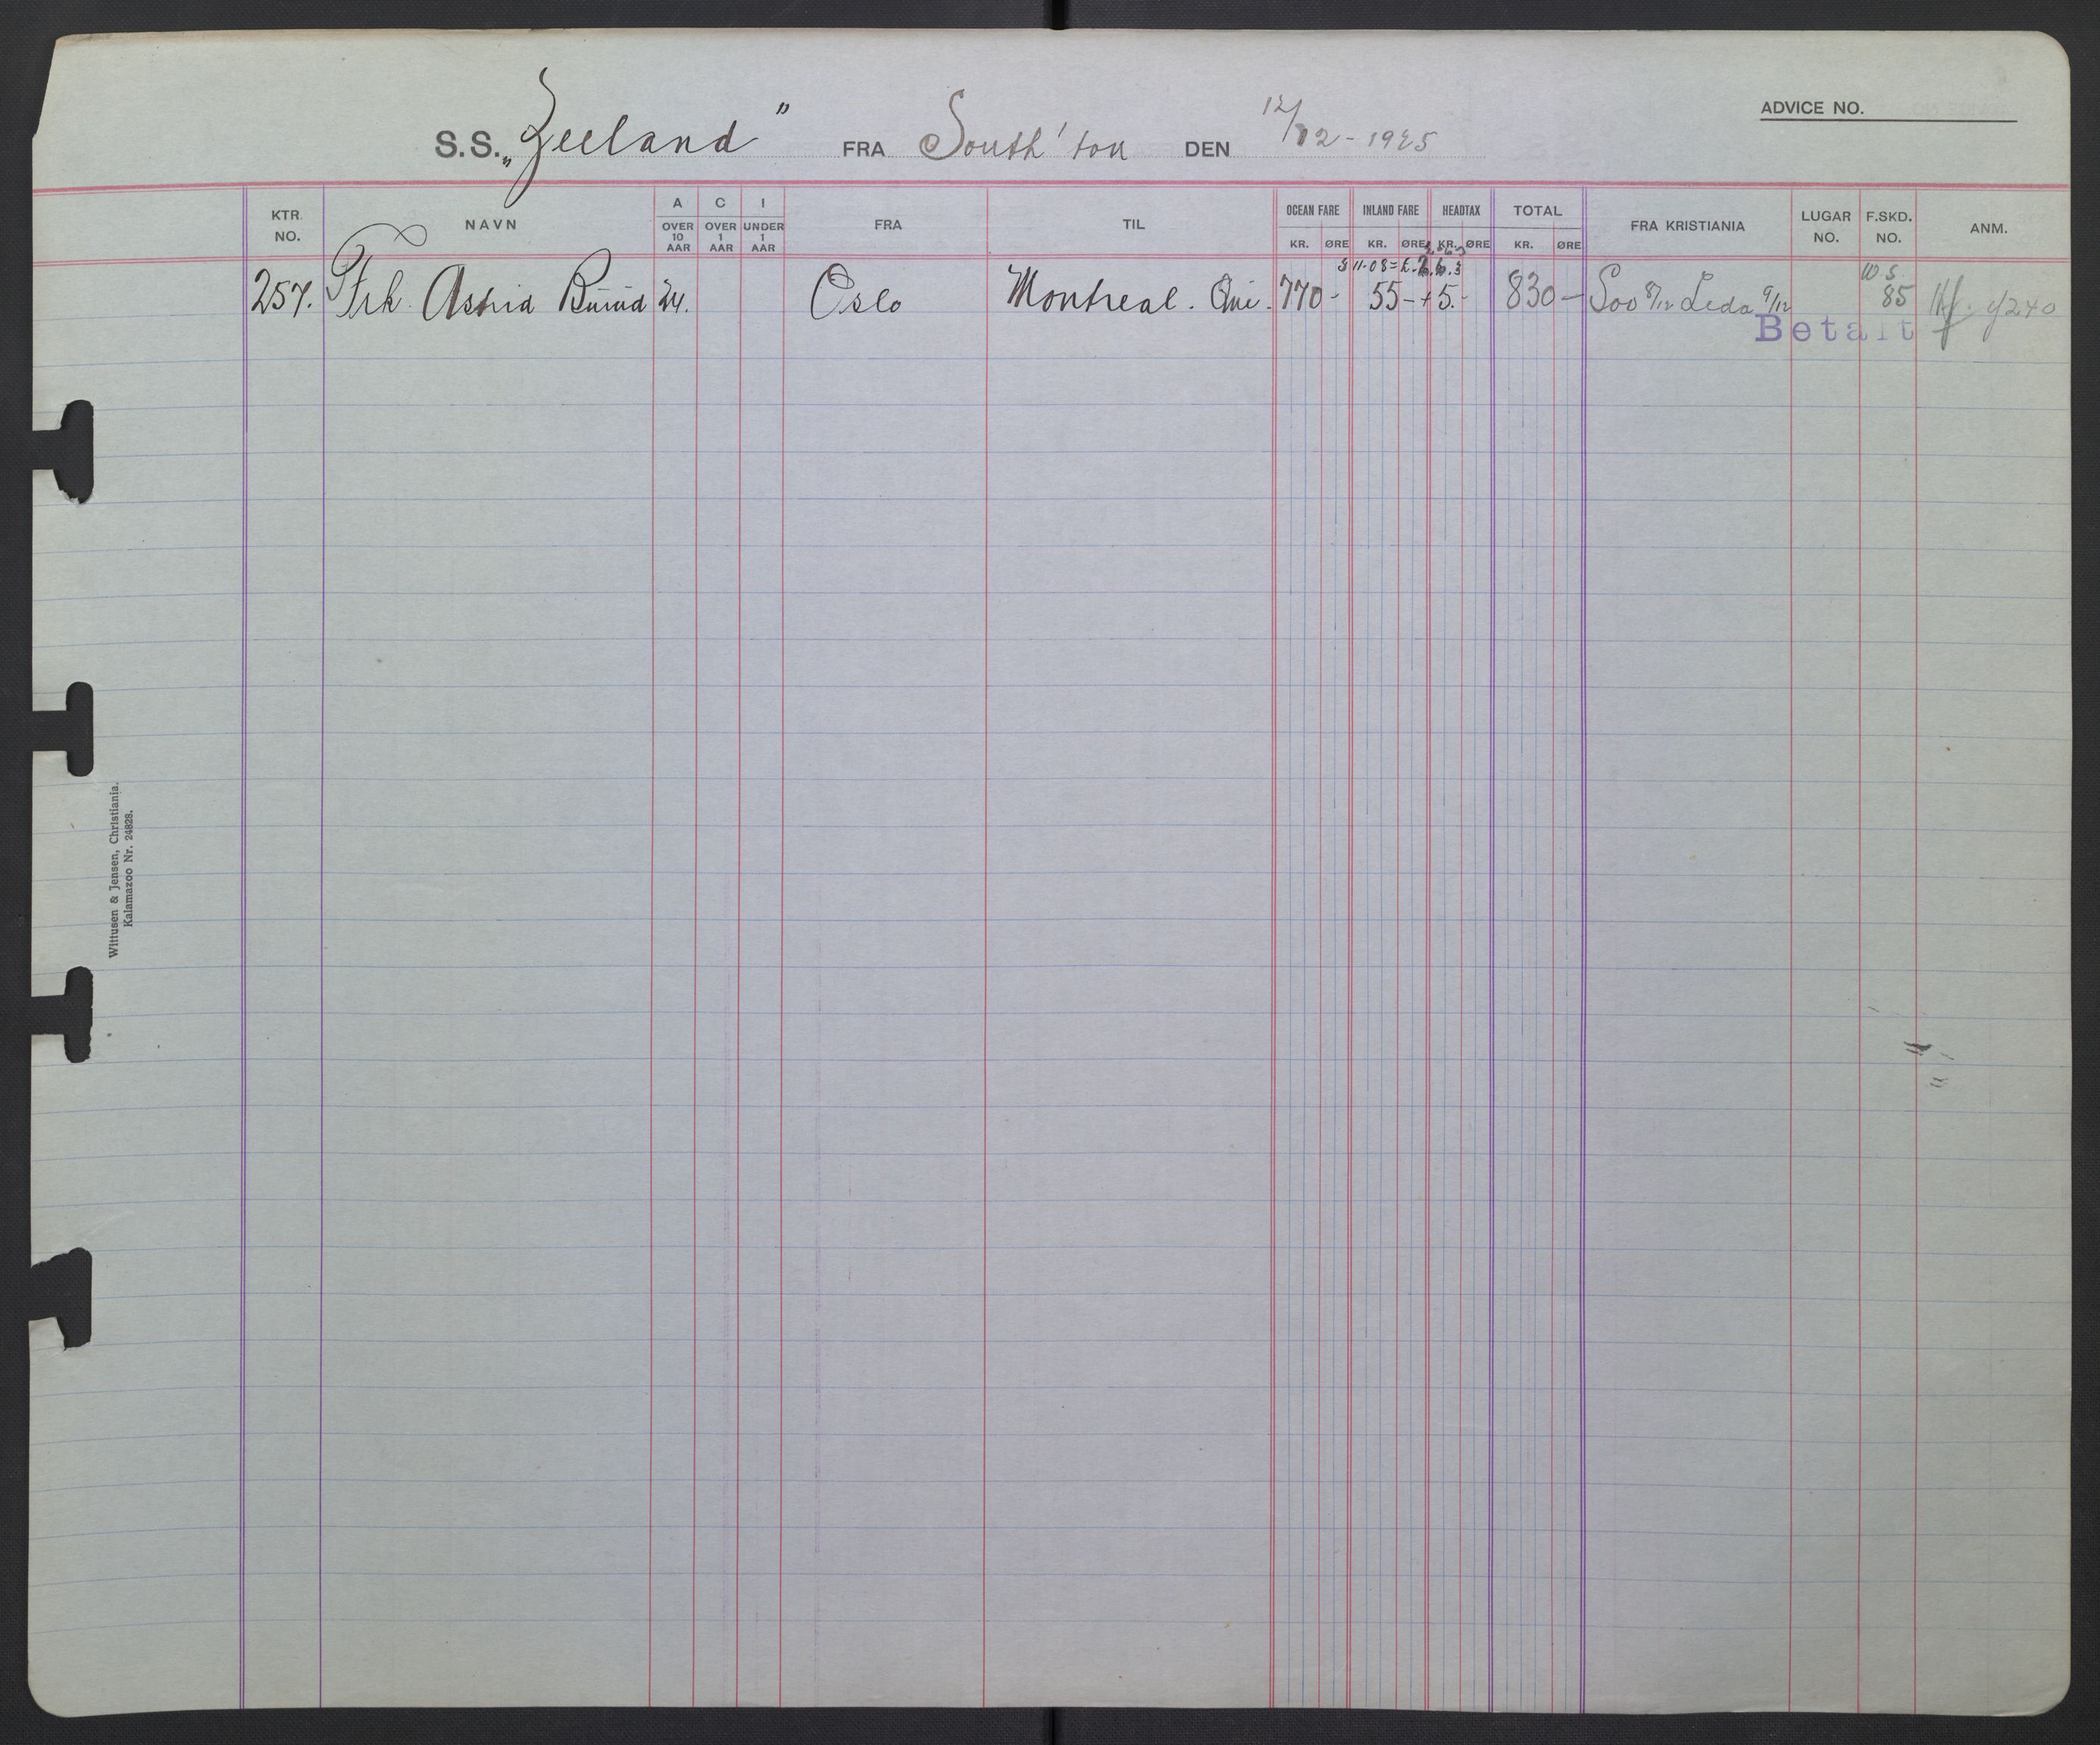 ADVICE NO.
S.S. „Zeeland” FRA South'ton DEN 12/12-1925
KTR. NO. NAVN A OVER 10 AAR C OVER 1 AAR I UNDER 1 AAR FRA TIL OCEAN FARE KR. ØRE INLAND FARE KR. ØRE HEADTAX KR. ØRE TOTAL KR. ØRE FRA KRISTIANIA LUGAR NO. F.SKD. NO. ANM.
257. Frk. Astrid Burud 24. Oslo Montreal. Que. 770- 55- + 5.- 830- Soo 8/12 Leda 9/12 W S. 85
Betalt
Wittusen & Jensen, Christiania.
Kalamazoo Nr. 24828.